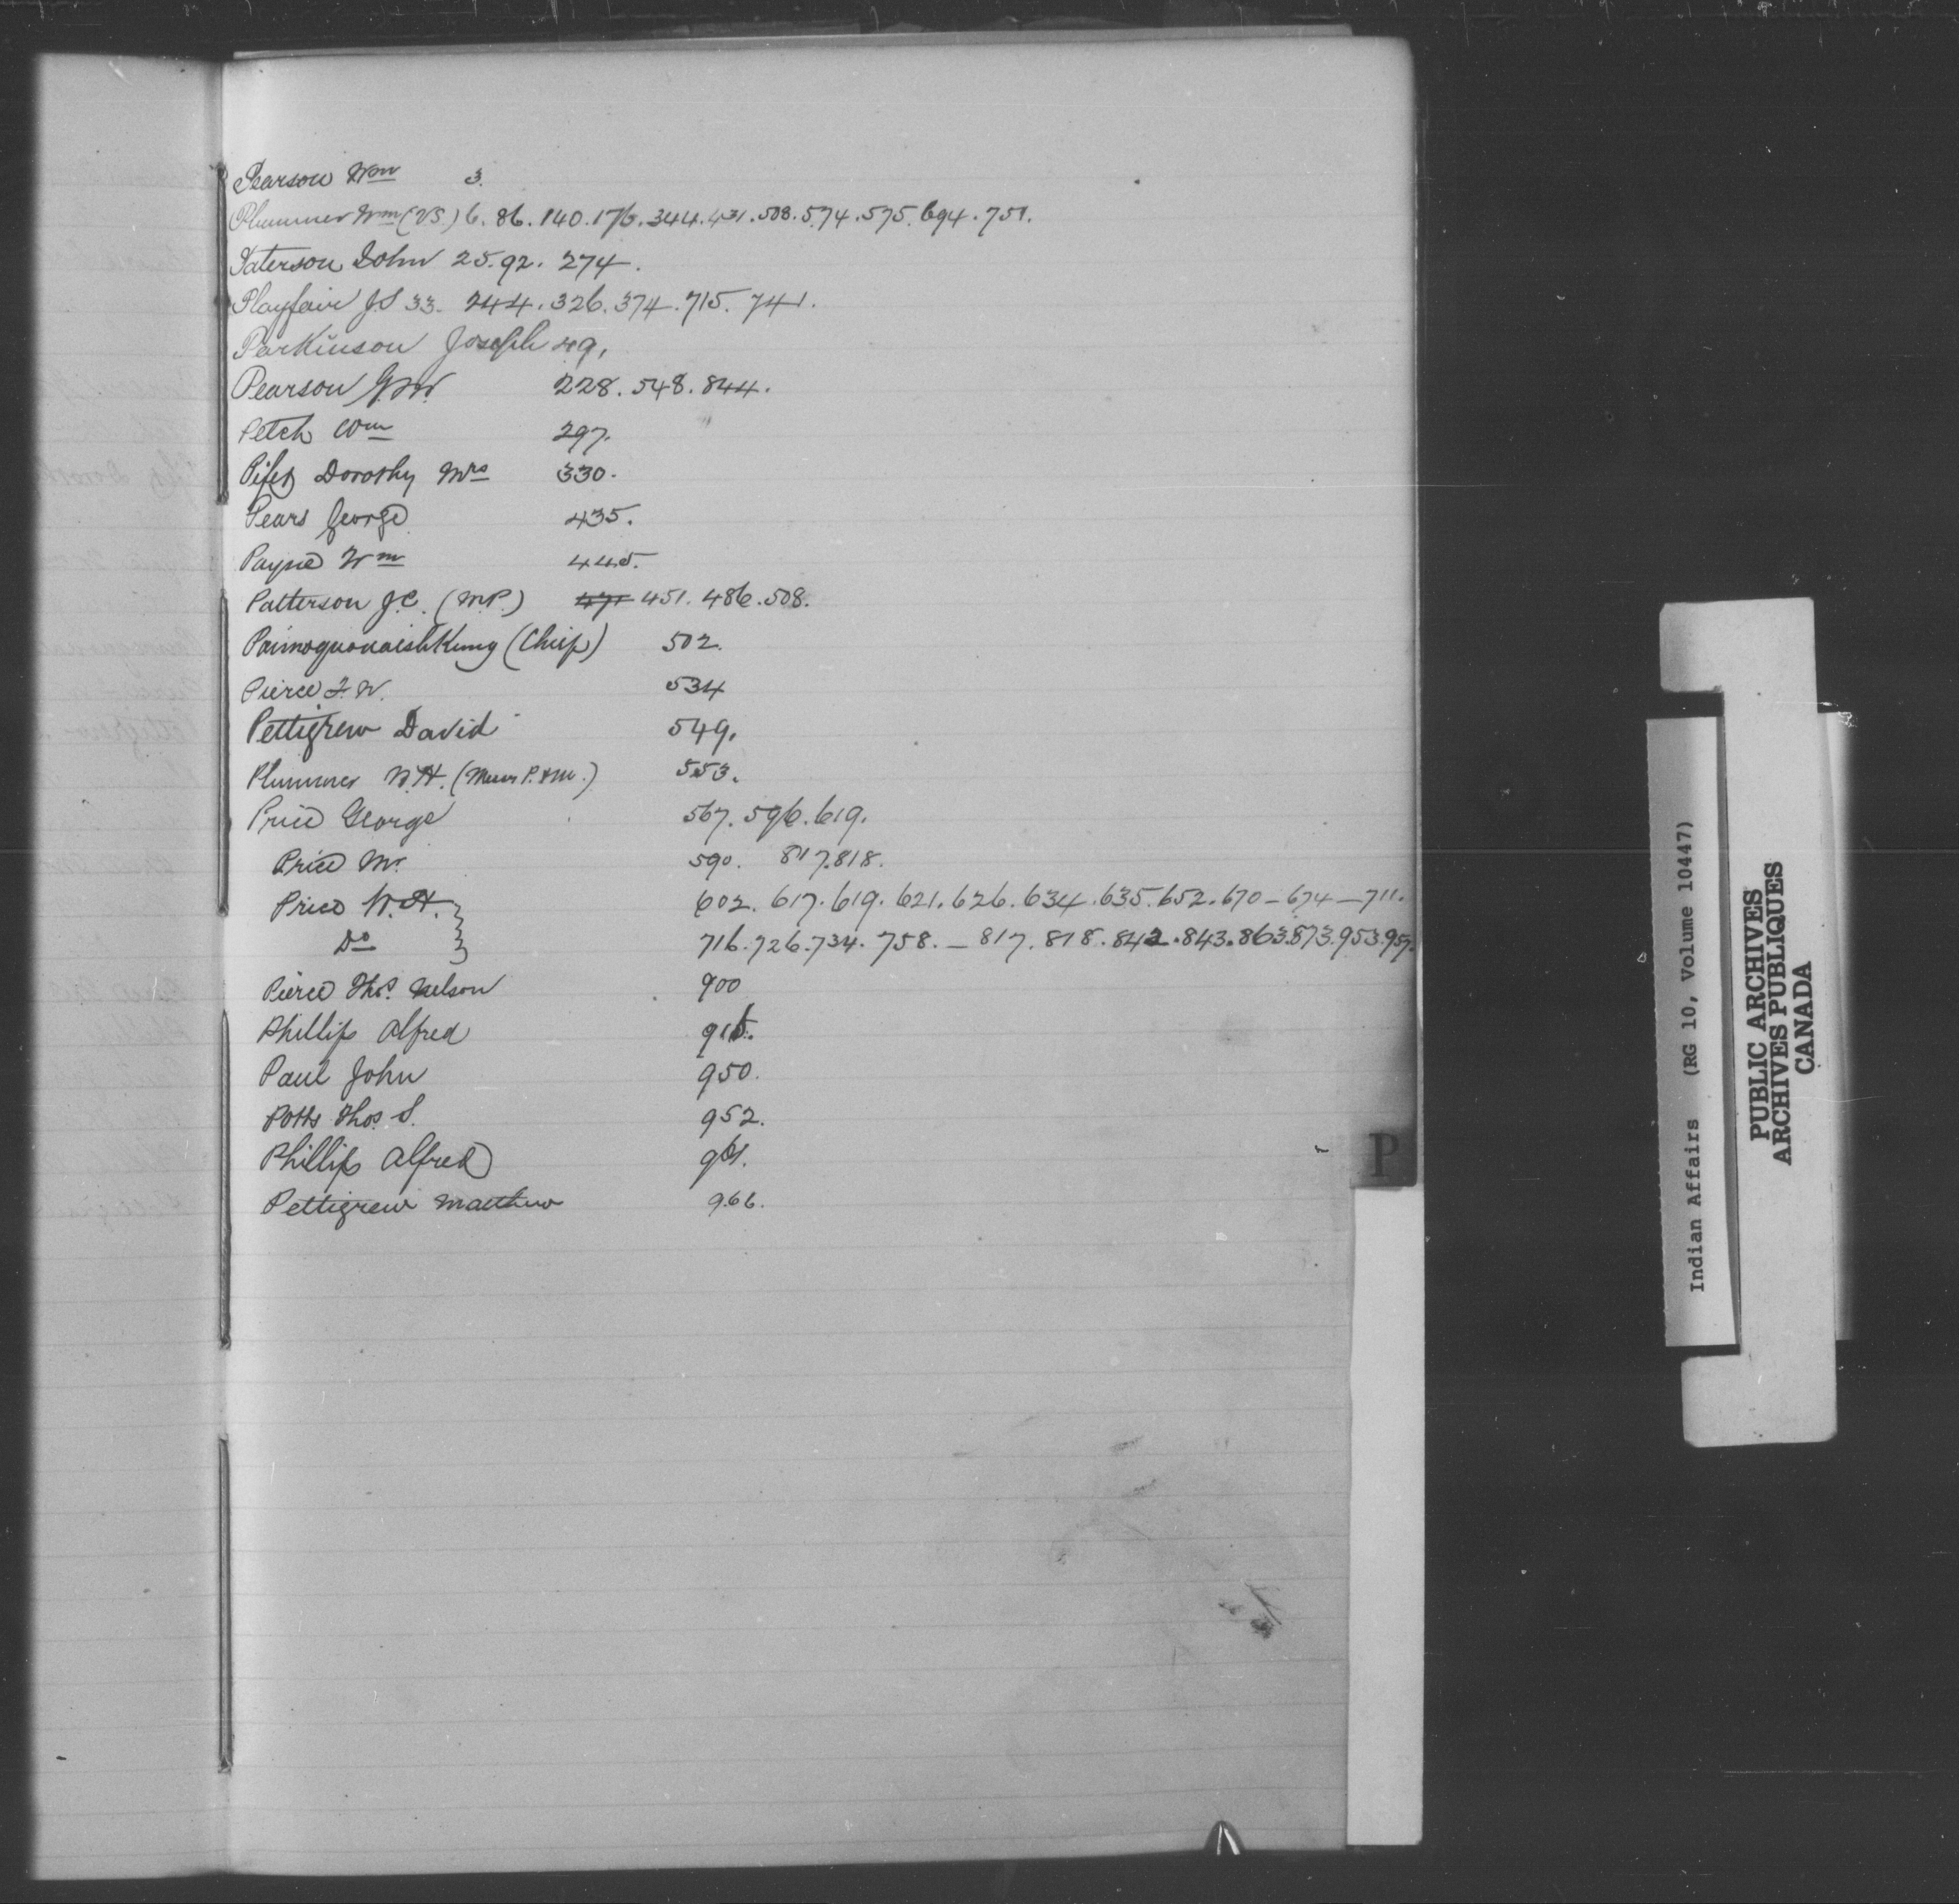 Pearson Wm 3.
Plummer Wm (VS) 6. 86. 140. 176. 344. 431. 508. 574. 575. 694. 751.
Paterson John 25. 92. 274.
Playfair J.S 33. 244. 326. 374. 715. 741.
Parkinson Joseph 49,
Pearson G.W. 228. 548. 844.
Petch Wm 297.
Dorothy Mrs 330.
Pears George 435.
Payne Wm 445.
Patterson J.C. (M.P.) 471 451. 486. 508.
(Chief) 502.
Pierce F. W. 534
Pettigrew David 549.
Plummer W.H. (Messrs P. & M.) 553.
Price George 567. 596. 619.
Price Mr. 590. 817. 818.
Price W.H. 602. 617. 619. 621. 626. 634. 635. 652. 670 - 674 - 711.
Do 716. 726. 734. 758. - 817. 818. 842. 843. 863. 873. 953. 957.
Pierce Thos. Nelson 900
Phillips Alfred
Paul John 950.
Potts Thos. S. 952.
Phillips Alfred 961.
Pettigrew Matthew 966.
P
Indian Affairs (RG 10, Volume 10447)
PUBLIC ARCHIVES
ARCHIVES PUBLIQUES
CANADA